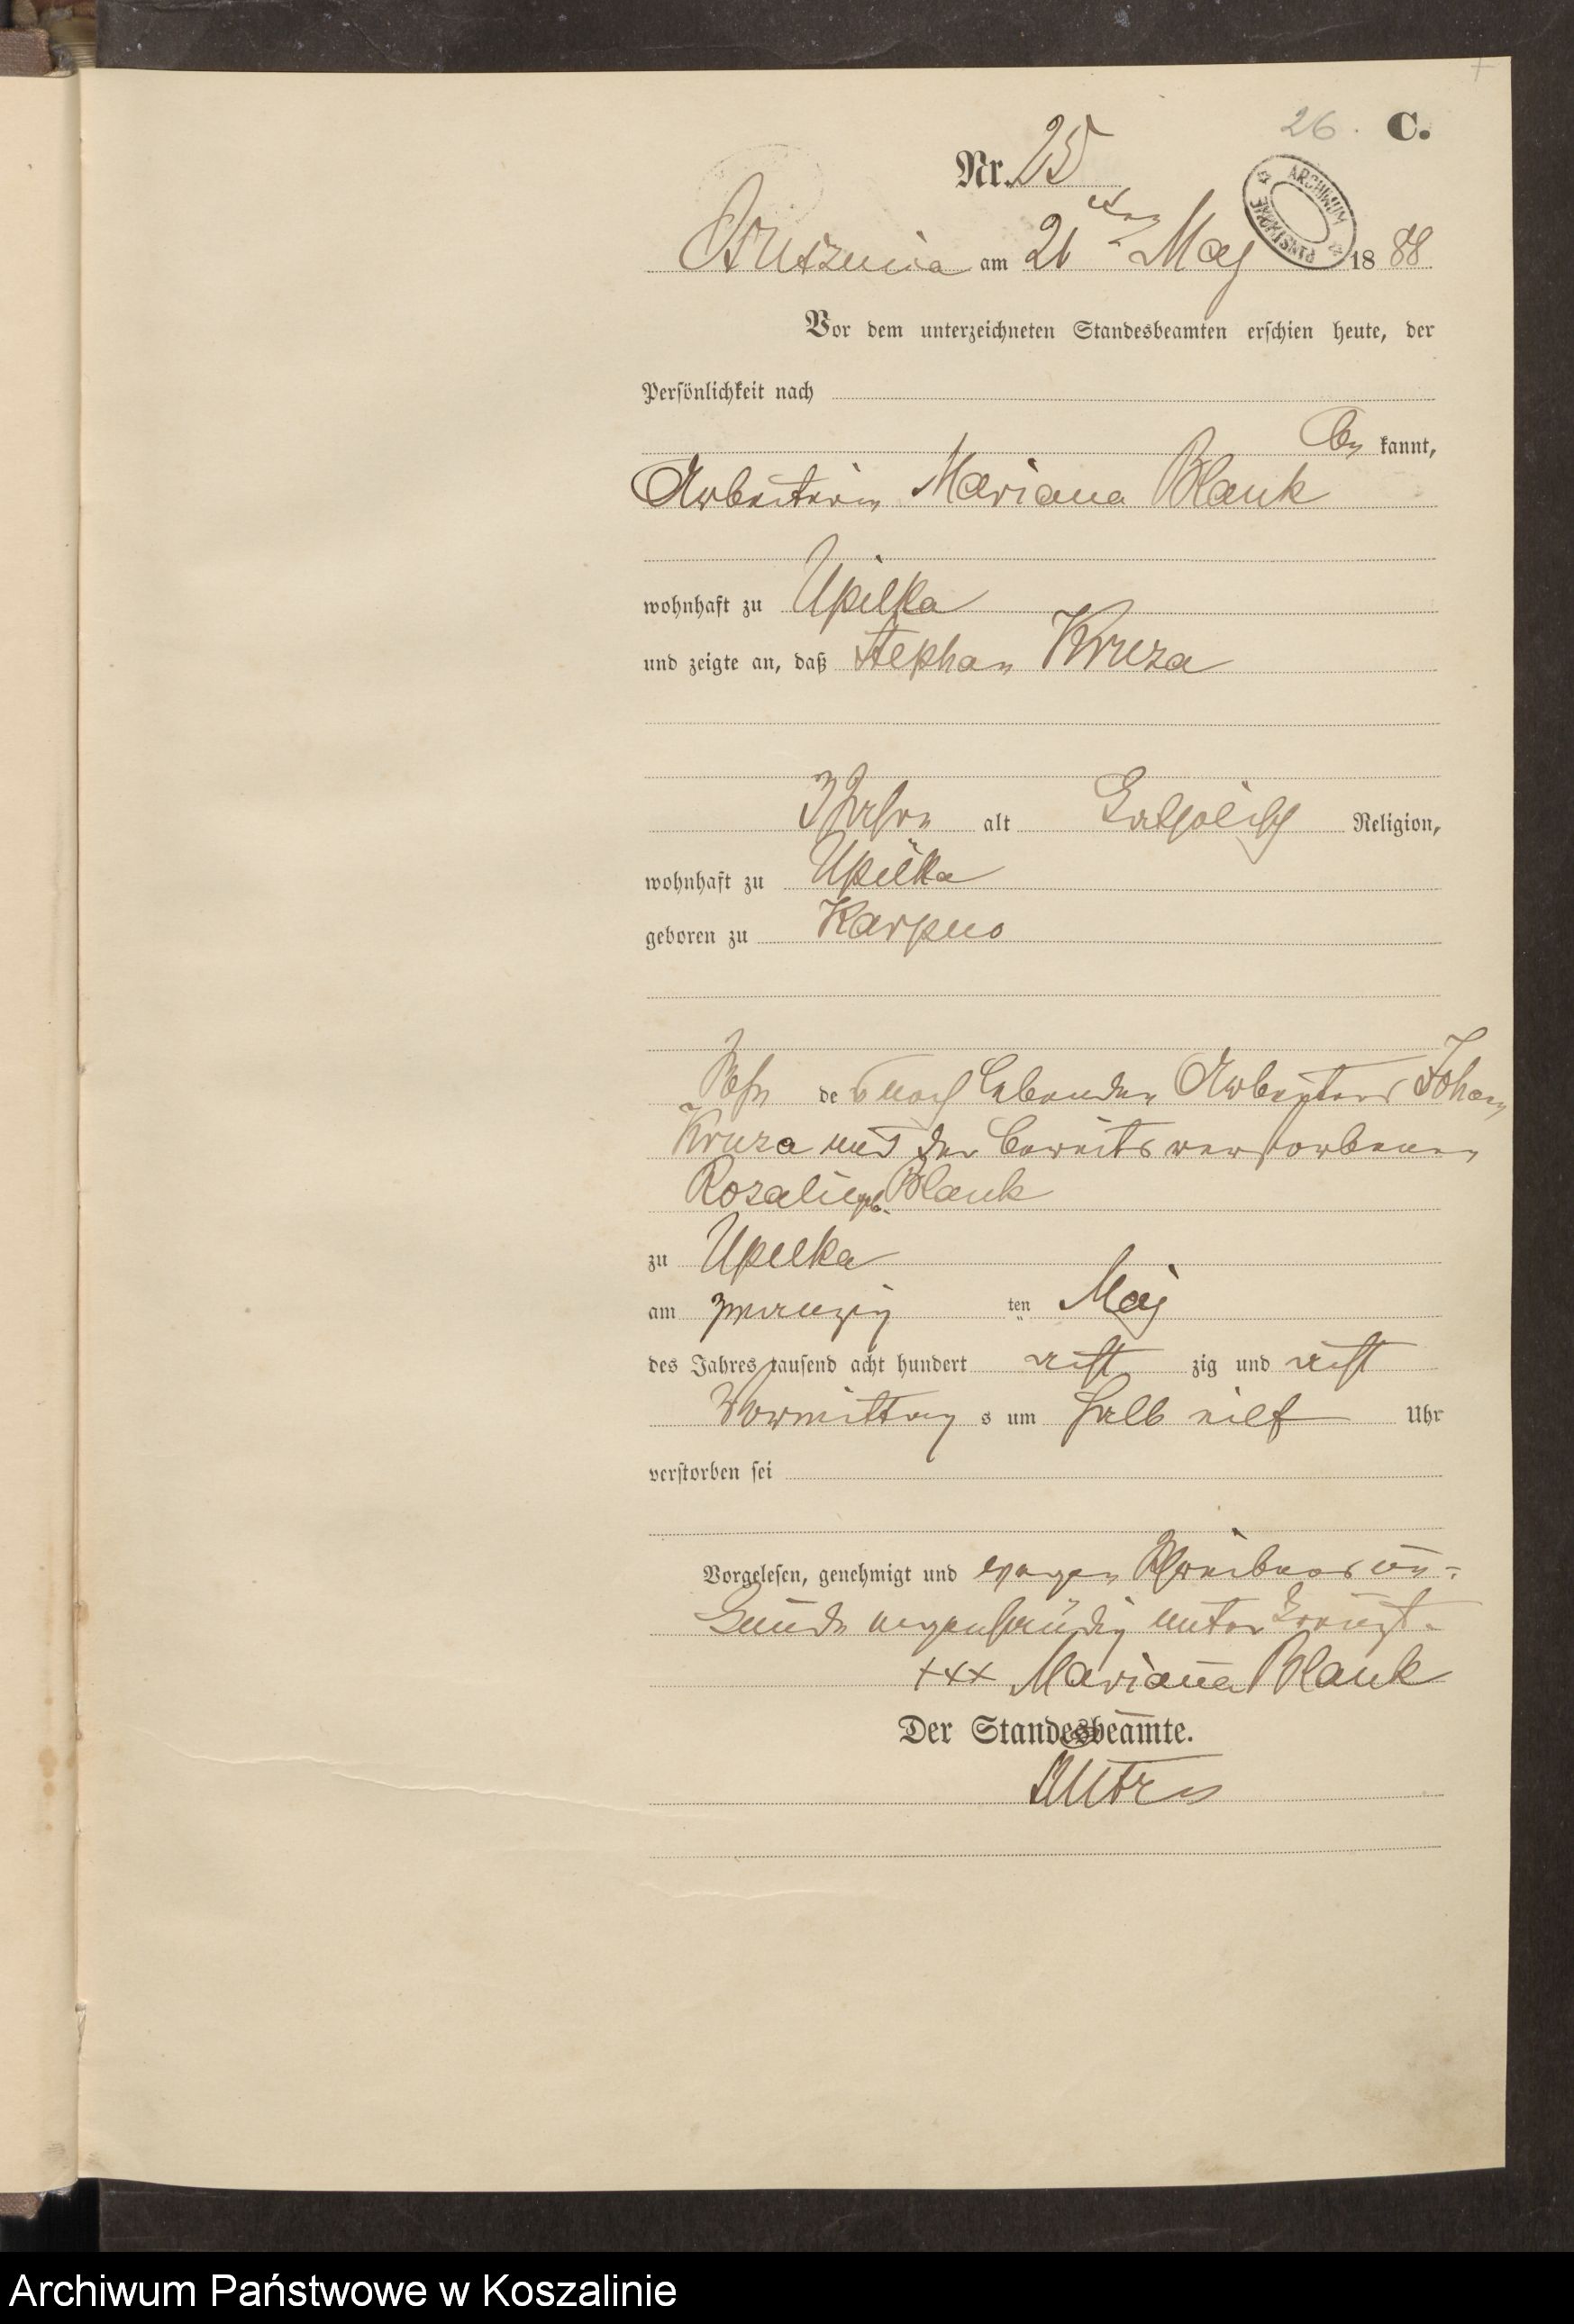 26. C.
Nr. 25
ARCHIWUM PAŃSTWOWE
am 21 ten May 1888
Vor dem unterzeichneten Standesbeamten erschien heute, der
Persönlichkeit nach
be kannt,
Arbeiterin Mariana Blank
wohnhaft zu Upilka
und zeigte an, daß Stephan Kruza
3 Jahre alt Katholisch Religion,
wohnhaft zu Upilka
geboren zu Karpno
Sohn des noch lebenden Arbeiters Johan
Kruza und der bereits verstorbenen
Rosalie geb. Blank
zu Upilka
am zwanzig ten May
des Jahres tausend acht hundert acht zig und acht
Vormittag s um halb eilf Uhr
verstorben sei
Vorgelesen, genehmigt und wegen Schreibens un-
kunde eigenhändig unterkreuzt.
+++ Mariana Blank
Der Standesbeamte.
Archiwum Państwowe w Koszalinie